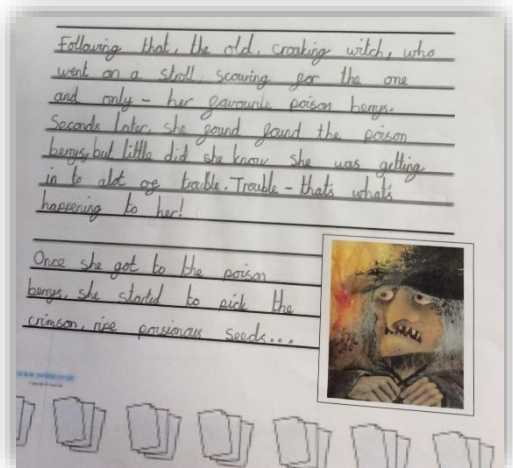 Following that, the old, croaking witch, who
went on a stroll scouring for the one
and only - her favourite poison berrys.
Seconds later, she found found the poison
berrys, but little did she know she was getting
in to alot of trouble. Trouble - that's what's
happening to her!
Once she got to the poison
berrys, she started to pick the
crimson, ripe poisionous seeds...